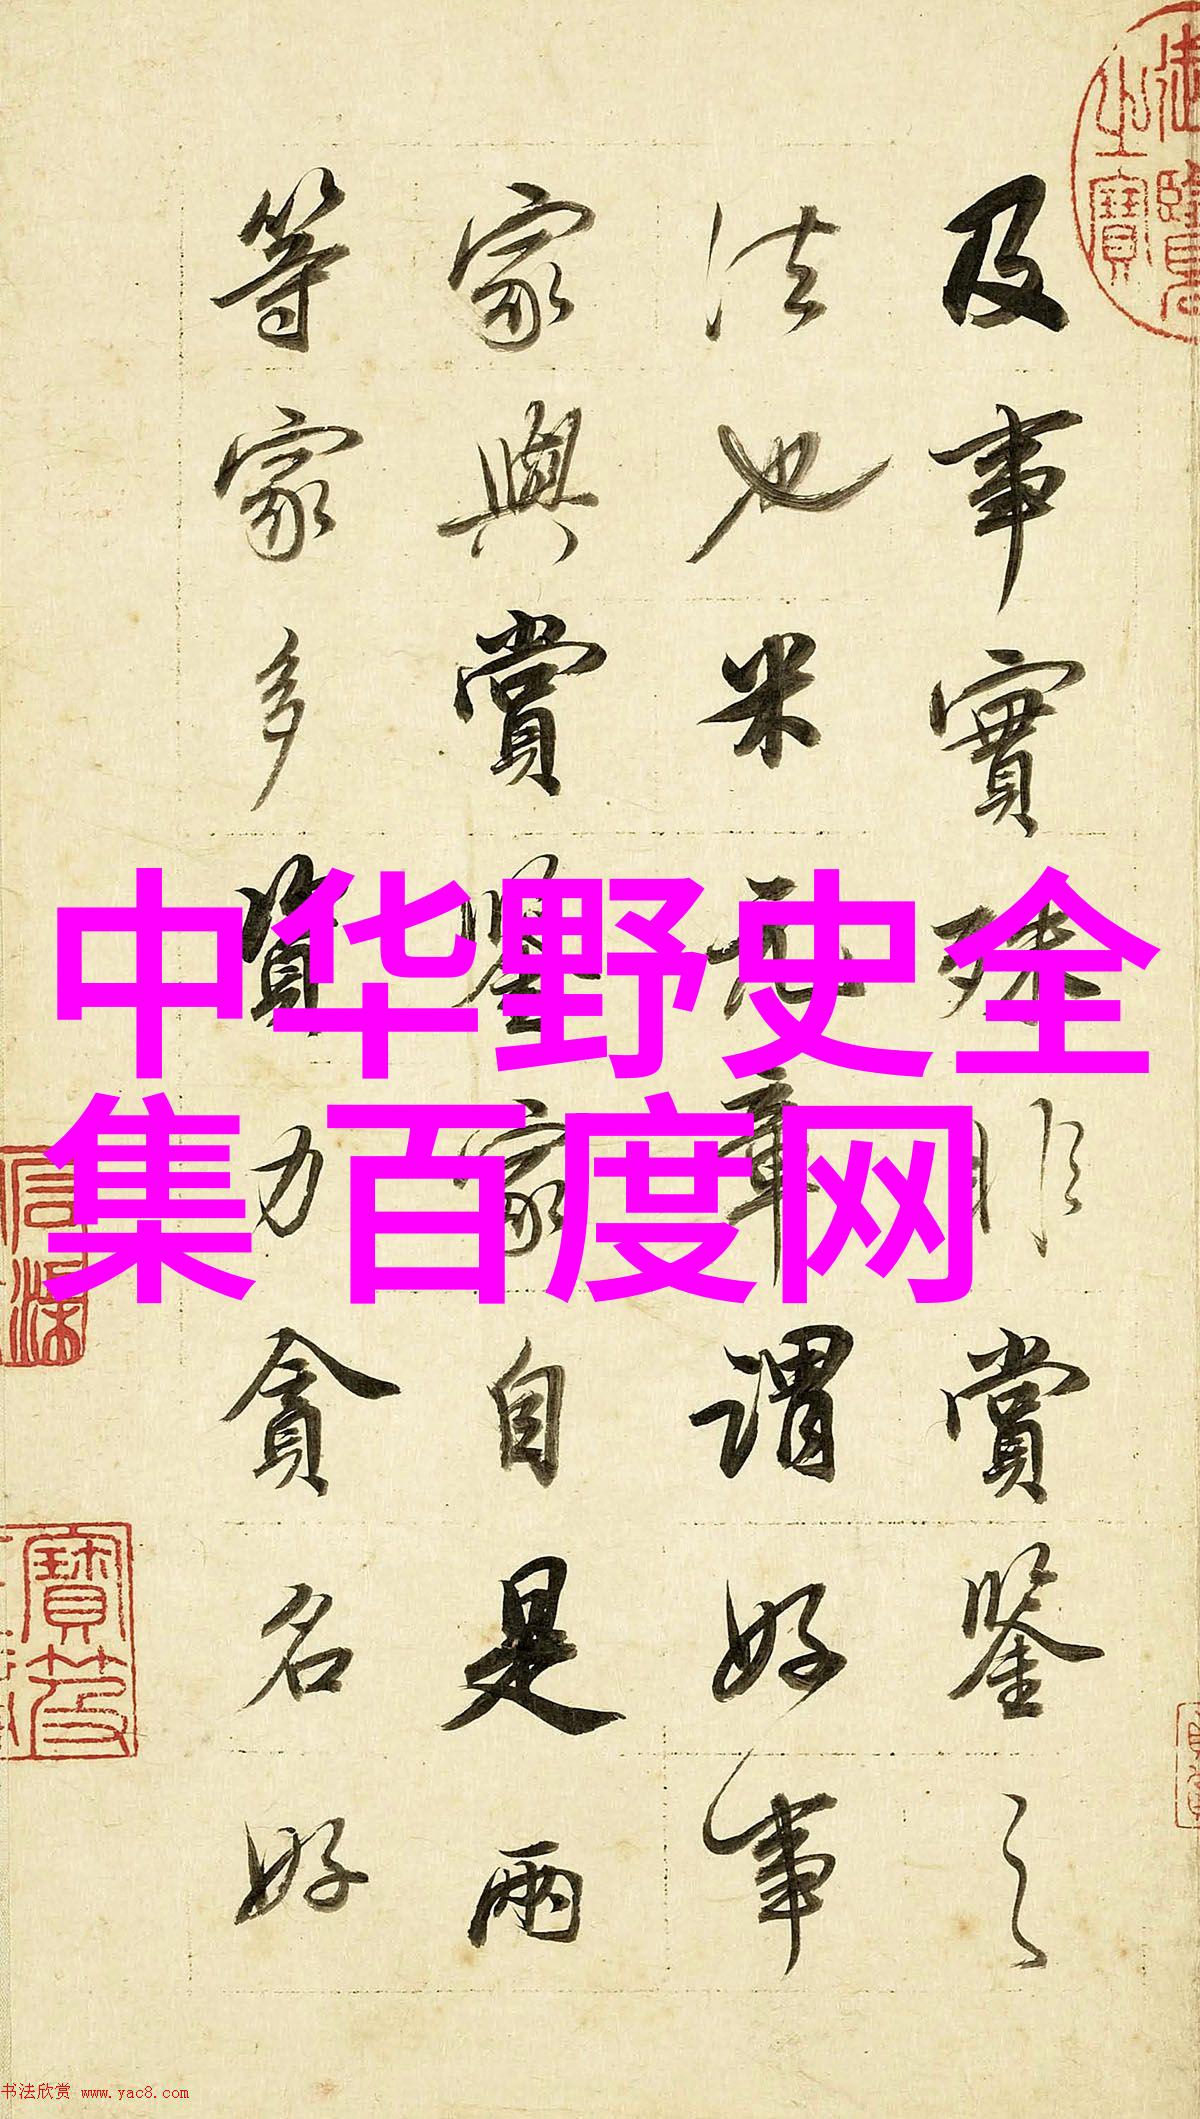 及事實殊非賞鑒之
法也米元章謂好事
家與賞鑒家自是兩
等家多資力貪名好
中华野史全
集 百度网
书法欣赏 www.yac8.com